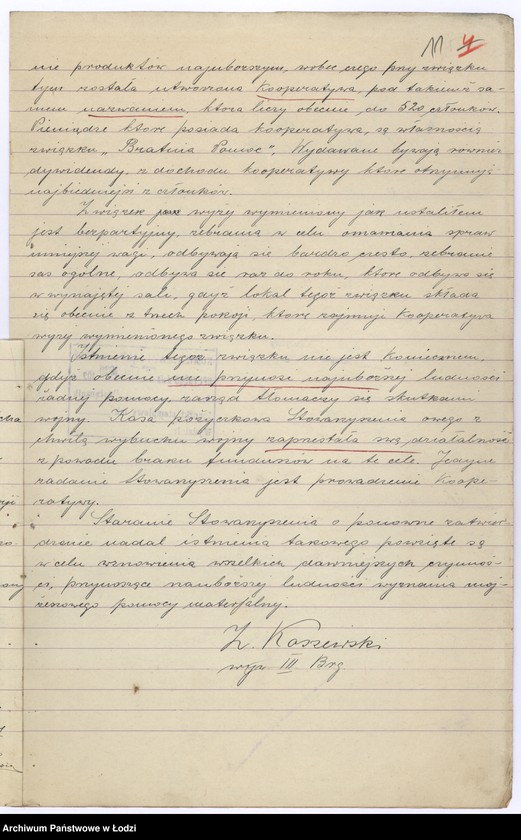 11 4
nie produktów najuboższym, wobec czego przy związku
tym została utworzona Kooperatywa, pod takimż sa-
mem nazwaniem, która liczy obecnie do 520 członków.
Pieniądze które posiada kooperatywa, są własnością
związku „Bratnia Pomoc". Wydawane bywają również
dywidendy, z dochodu kooperatywy które otrzymują
najbiedniejsi z członków.
Związek wyżej wymieniony jak ustaliłem
jest bezpartyjny, zebrania w celu omawiania spraw
mniejszej wagi, odbywają się bardzo często, zebranie
zaś ogólne, odbywa się raz do roku, które odbywa się
w wynajętej sali, gdyż lokal tegoż związku składa
się obecnie z trzech pokoji, które zajmuje Kooperatywa
wyżej wymienionego związku.
Istnienie tegoż związku nie jest koniecznem,
gdyż obecnie nie przynosi najuboższej ludności
żadnej pomocy, zarząd tłomaczy się skutkami
wojny. Kasa pożyczkowa Stowarzyszenia owego z
chwilą wybuchu wojny zaprzestała swą działalność
z powodu braku funduszów na te cele. Jedyne
zadanie Stowarzyszenia jest prowadzenie Koope-
ratywy.
Staranie Stowarzyszenia o ponowne zatwier-
dzenie nadal istnienia takowego powzięte są
w celu wznowienia wszelkich dawniejszych czynnoś-
ci, przynosząc najuboższej ludności wyznania moj-
żeszowego pomocy materjalny.
Z. Kaszewski
wyw. III Brg
Archiwum Państwowe w Łodzi